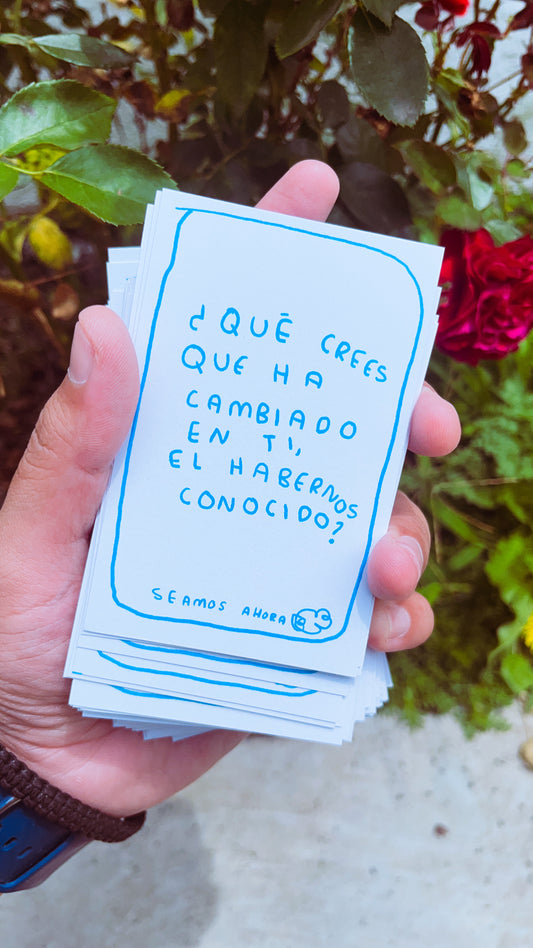 ¿QUÉ CREES
QUE HA
CAMBIADO
EN TI,
EL HABERNOS
CONOCIDO?
SEAMOS AHORA